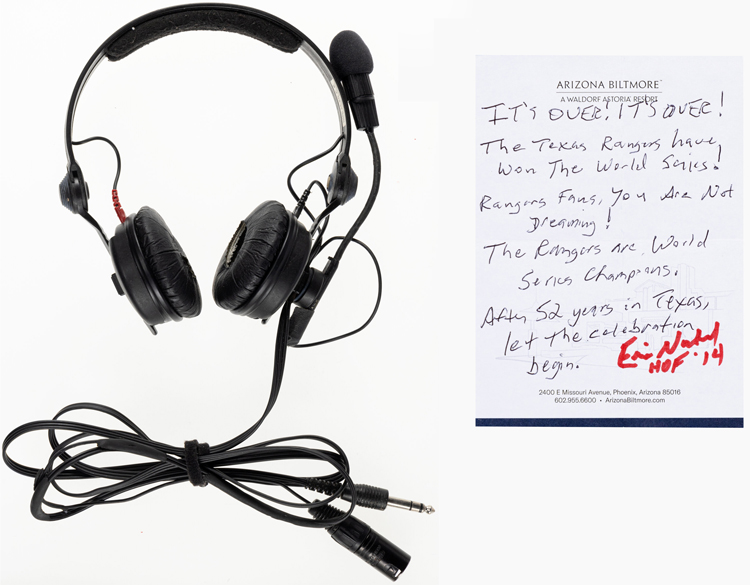 ARIZONA BILTMORE™
A WALDORF ASTORIA RESORT
IT'S OVER! IT'S OVER!
The Texas Rangers have
Won The World Series!
Rangers Fans, You Are Not
Dreaming!
The Rangers are World
Series Champions.
After 52 years in Texas,
let the celebration
begin.
Eric Nadel
HOF '14
2400 E Missouri Avenue, Phoenix, Arizona 85016
602.955.6600 • ArizonaBiltmore.com